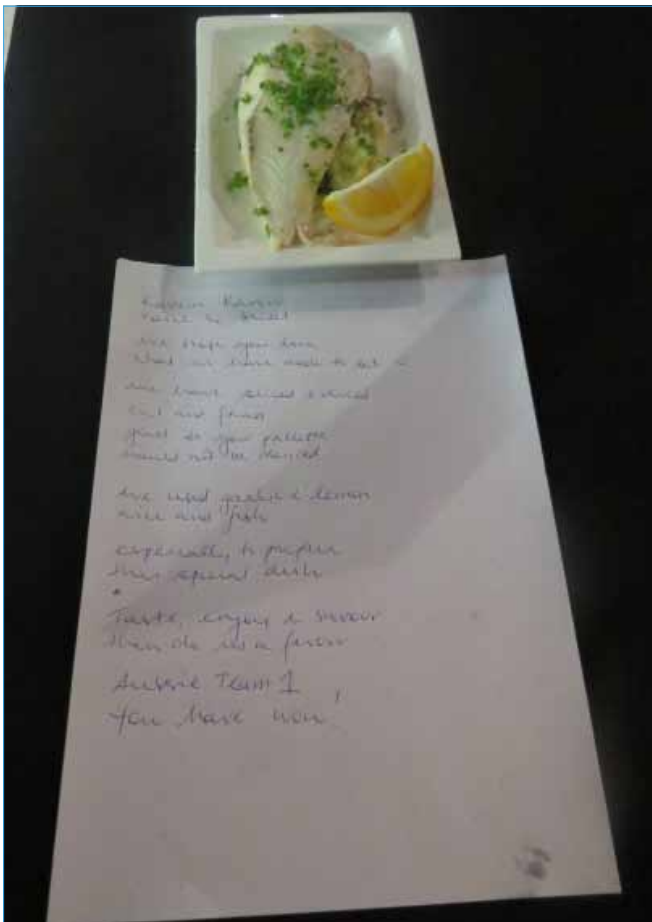 we hope you love
what we have made to eat
we have sliced & diced
cut and fried
your palette
should not be denied
we used garlic & lemon
rice and fish
especially to prepare
this special dish
Taste, enjoy & savour
then do us a favour
Aussie Team 1
You have won!